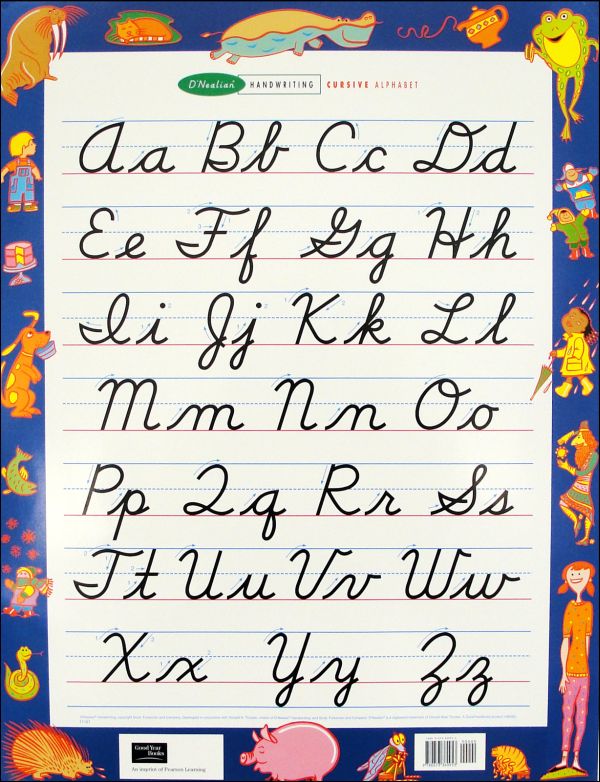 D'Nealian® HANDWRITING CURSIVE ALPHABET
Aa Bb Cc Dd
Ee Ff Gg Hh
Ii Jj Kk Ll
Mm Nn Oo
Pp Qq Rr Ss
Tt Uu Vv Ww
Xx Yy Zz
Good Year
Books
An imprint of Pearson Learning